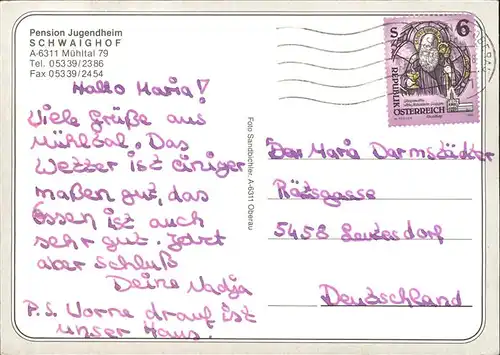 Pension Jugendheim
SCHWAIGHOF
A-6311 Mühltal 79
Tel. 05339/2386
Fax 05339/2454
Hallo Maria!
Viele Grüße aus
Mühltal. Das
Wetter ist einiger
maßen gut, das
Essen ist auch
sehr gut. Jetzt
aber Schluß
Deine Nadja
P.S. Vorne drauf ist
unser Haus.
Foto Sandbichler, A-6311 Oberau
S 6
REPUBLIK
ÖSTERREICH
Maria Darmstädter
Rötsgasse
5458 Leutesdorf
Deutschland